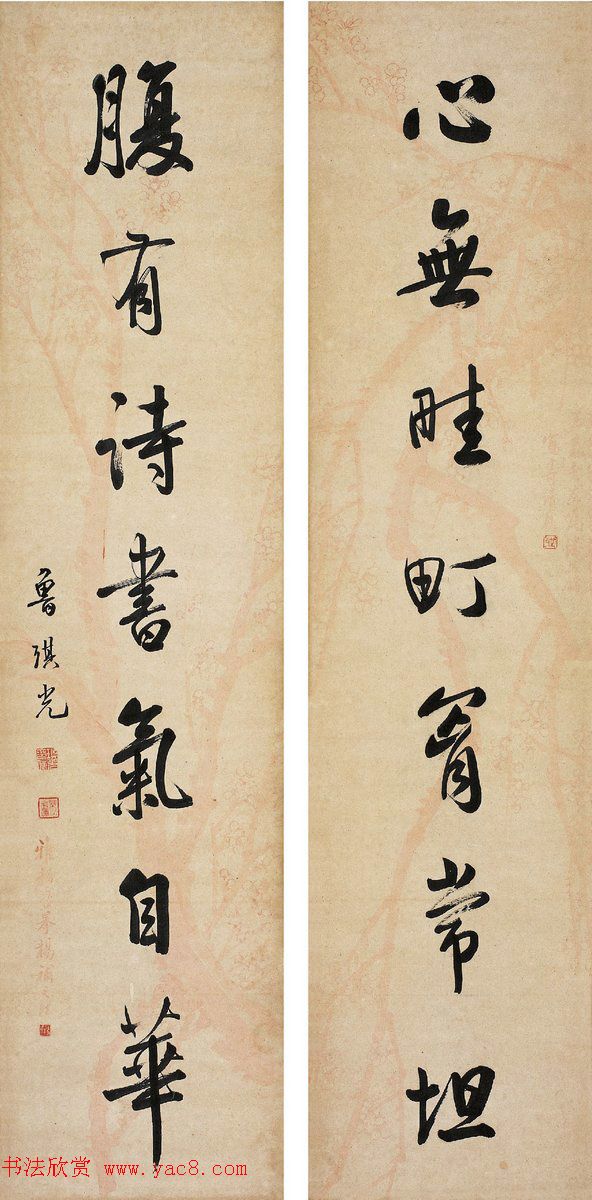 心無畦町胷常坦
腹有詩書氣自華
魯琪光
书法欣赏 www.yac8.com